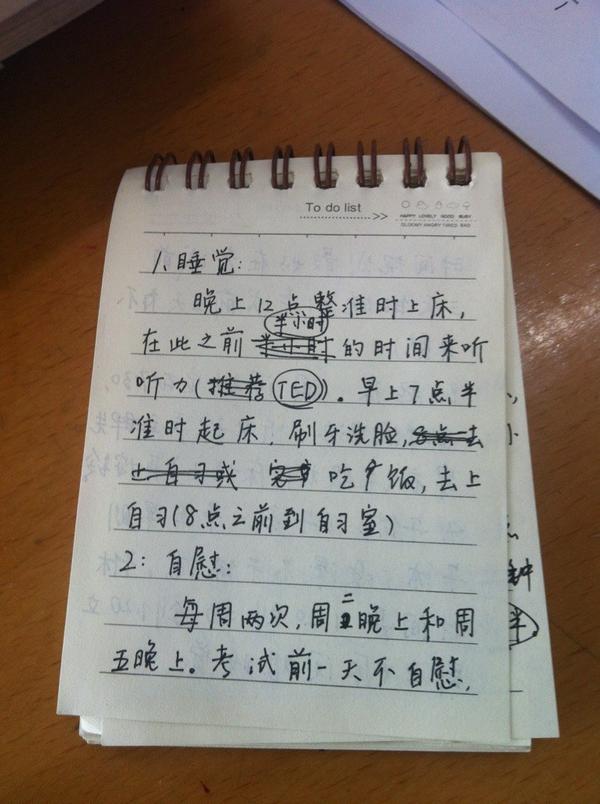 To do list
>>
HAPPY LOVELY GOOD BUSY
GLOOMY ANGRY TIRED BAD
1、睡觉:
晚上12点整准时上床,
半小时
在此之前半小时的时间来听
听力(推荐TED)。早上7点半
准时起床,刷牙洗脸,8点去
上自习或 吃个饭,去上
自习(8点之前到自习室)
2:自慰:
每周两次,周二晚上和周
五晚上。考试前一天不自慰,
钟
半。